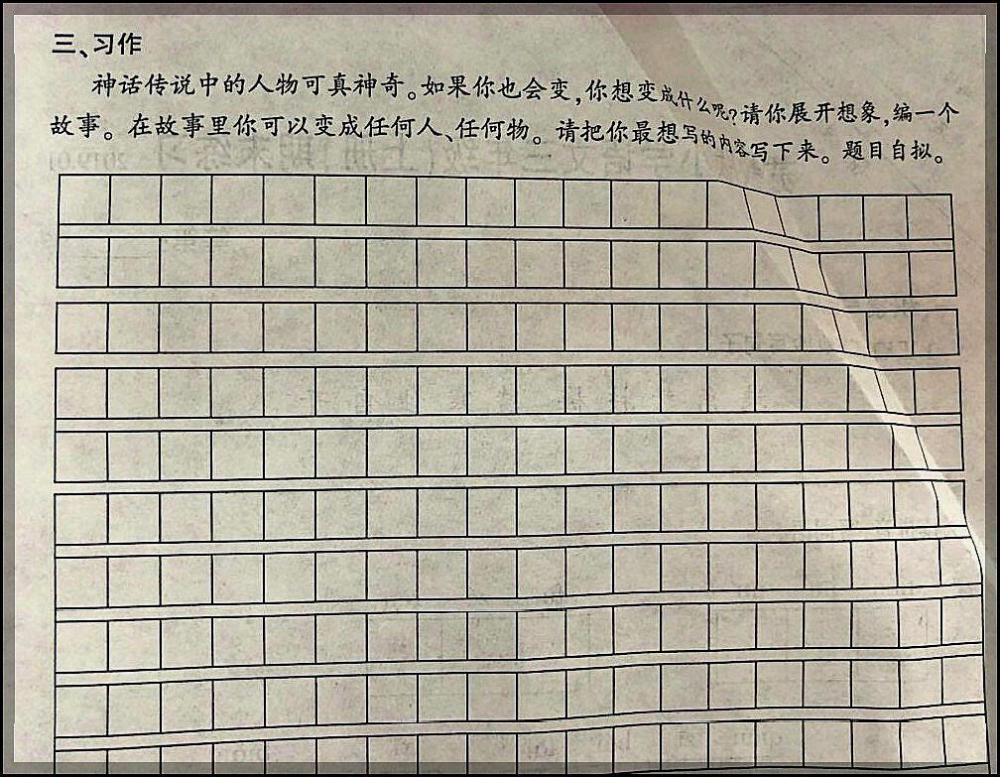 三、习作
神话传说中的人物可真神奇。如果你也会变,你想变成什么呢?请你展开想象,编一个
故事。在故事里你可以变成任何人、任何物。请把你最想写的内容写下来。题目自拟。